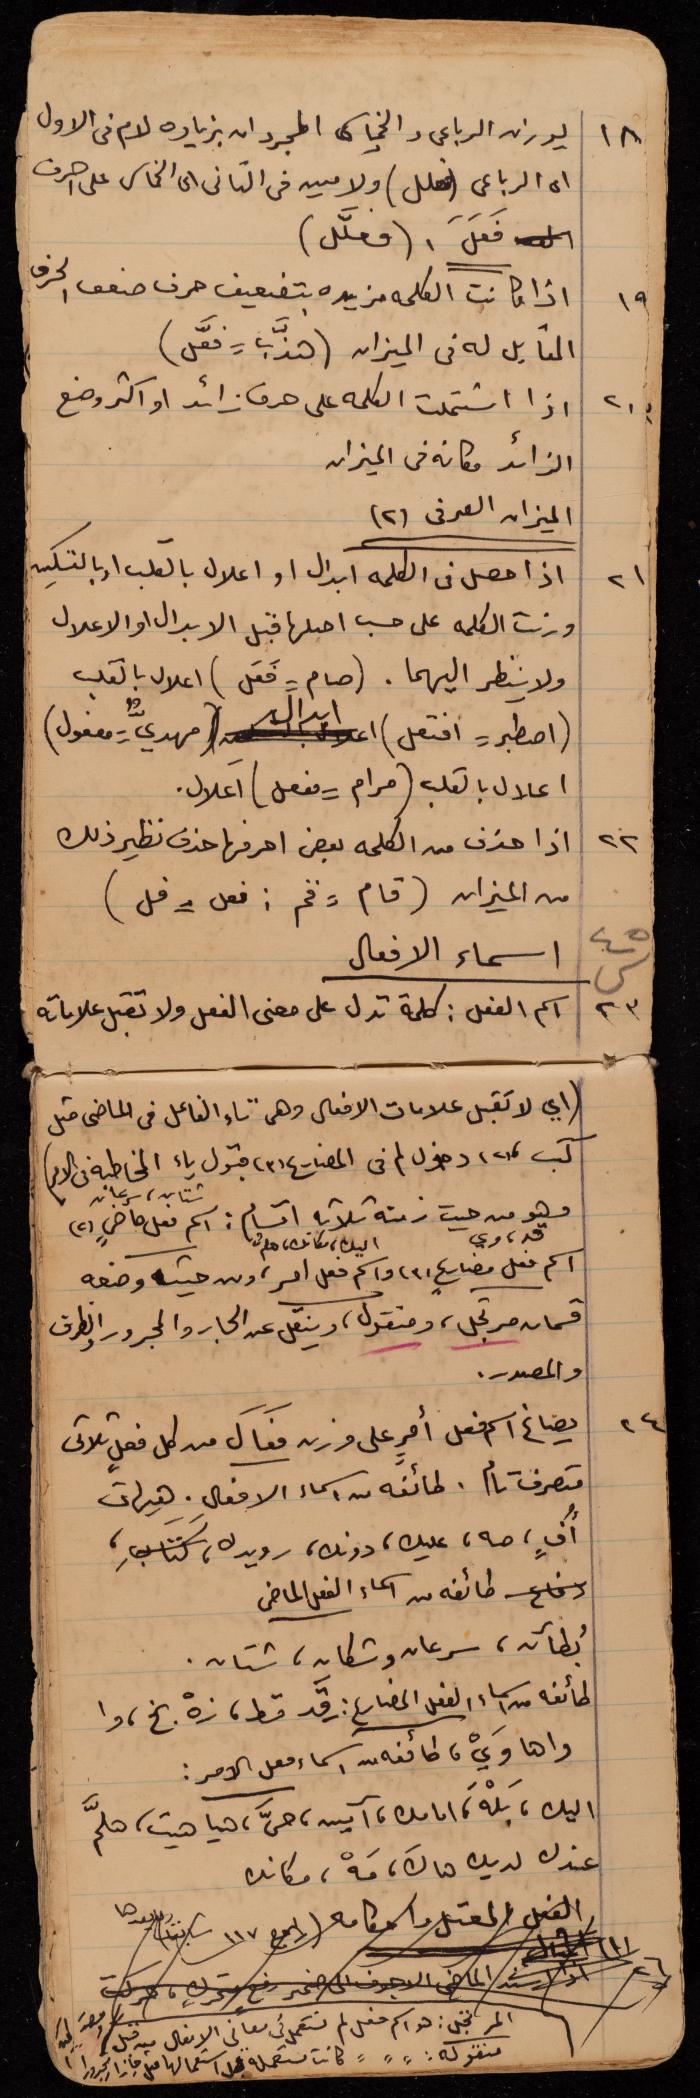 ١٨ يوزن الرباعى والخماسى المجردان بزياده لام فى الاول
اى الرباعى (فعلل) ولامين فى الثانى اى الخماسى على احرف
فَعَلَ ، (فعلَّل)
١٩ اذا كانت الكلمه مزيده بتضعيف حرف ضعف الحرف
المقابل له فى الميزان (هذَّب = فعَّل)
٢٠ اذا اشتملت الكلمه على حرف زائد او اكثر وضع
الزائد مكانه فى الميزان
الميزان الصرفى (٢)
٢١ اذا حصل فى الكلمه ابدال او اعلال بالقلب او بالتسكين
وزنت الكلمه على حسب اصلها قبل الابدال او الاعلال
ولا ينظر اليهما . (صام = فَعَل) اعلال بالقلب
(اصطبر = افتعل) ابدال (مهديٌّ = مفعول)
اعلال بالقلب (مرام = مفعل) اعلال.
٢٢ اذا حذف من الكلمه بعض احرفها حذف نظير ذلك
من الميزان (قام = قم : فعل = فل)
اسماء الافعال
٢٣ اسم الفعل : كلمة تدل على معنى الفعل ولا تقبل علاماته
(اي لا تقبل علامات الافعال وهى تاء الفاعل فى الماضى مثل
كتب (٢) دخول لم فى المضارع (٣) قبول ياء المخاطبه فى الامر)
شتان، سرعان
وهو من حيث زمنه ثلاثه اقسام : اسم فعل ماضٍ (٢)
قد، وي اليك، مكانك، هلم
اسم فعل مضارع (٣) واسم فعل امر، ومن حيث وضعه
قسمان مرتجل، ومنقول، وينقل عن الجار والمجرور والظرف
والمصدر.
٢٤ يصاغ اسم فعل أمرٍ على وزن فَعَالَ من كل فعلٍ ثلاثى
متصرف تام . طائفه من اسماء الافعال . هيهات
أُفٍ، صه، عليك، دونك، رويدك، كَتَابِ،
دفاع طائفه من اسماء الفعل الماضى
بُطآن، سرعان وشكان، شتان .
طائفه من اسماء الفعل المضارع : قَد قط، زهْ بخ، وا
واها وَيْ، طائفه من اسماء فعل الامر :
اليك، بَلْهَ، امامك، آمين، حىَّ، هيا هيت، هلمَّ
عندك لديك هاكَ، مَهْ، مكانك
الفعل المعتل واحكامه (راجع ١١٧
٢٦ اذا اسند الماضى الاجوف الى ضمير رفع متحرك، حركت
المرتجل : هو اسم فعل لم تستعمل فى معانى الافعال من قبل
منقوله : " " " كانت مستعملة قبل استعمالها